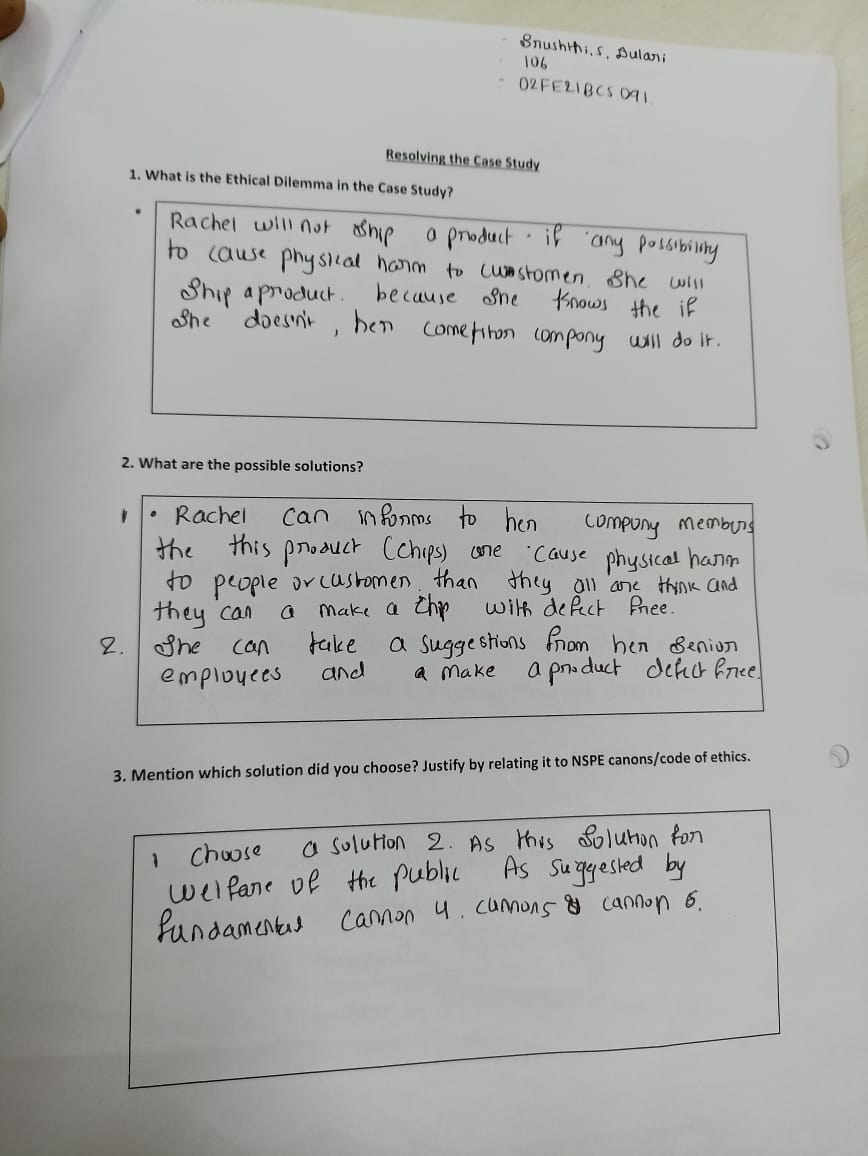 Srushthi.S. Dulari
106
02FE21BCS091
Resolving the Case Study
1. What is the Ethical Dilemma in the Case Study?
Rachel will not ship a product . if any possibility
to cause physical harm to customer. She will
Ship a product. because she knows the if
She doesn't, her cometiton company will do it.
2. What are the possible solutions?
1 • Rachel can informs to her company members
the this product (chips) are cause physical harm
to people or customer. than they all are think and
they can a make a chip with defect free.
2. She can take a suggestions from her senior
employees and a make a product defect free.
3. Mention which solution did you choose? Justify by relating it to NSPE canons/code of ethics.
I choose a solution 2. As this solution for
welfare of the public As suggested by
fundamental cannon 4. cannons cannon 6.